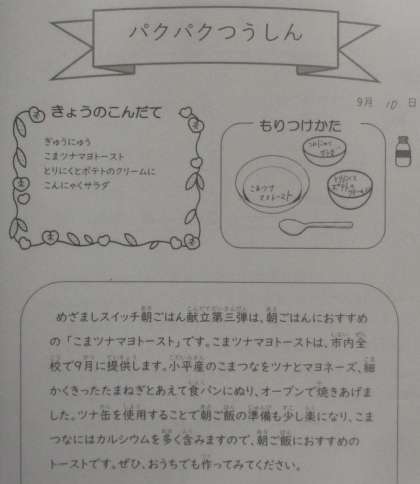 パクパクつうしん
9月 10 日
きょうのこんだて
ぎゅうにゅう
こまツナマヨトースト
とりにくとポテトのクリームに
こんにゃくサラダ
もりつけかた
こんにゃく
サラダ
こまツナ
マヨトースト
とりにくと
ポテトの
クリームに
めざましスイッチ朝ごはん献立第三弾は、朝ごはんにおすすめ
の「こまツナマヨトースト」です。こまツナマヨトーストは、市内全
校で9月に提供します。小平産のこまつなをツナとマヨネーズ、細
かくきったたまねぎとあえて食パンにぬり、オーブンで焼きあげま
した。ツナ缶を使用することで朝ご飯の準備も少し楽になり、こま
つなにはカルシウムを多く含みますので、朝ご飯におすすめの
トーストです。ぜひ、おうちでも作ってみてください。